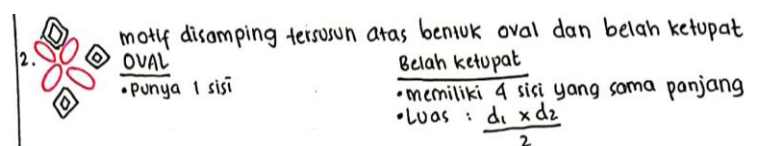 2. motif disamping tersusun atas bentuk oval dan belah ketupat
OVAL
• Punya 1 sisi
Belah ketupat
• memiliki 4 sisi yang sama panjang
• Luas : d₁ x d₂
2